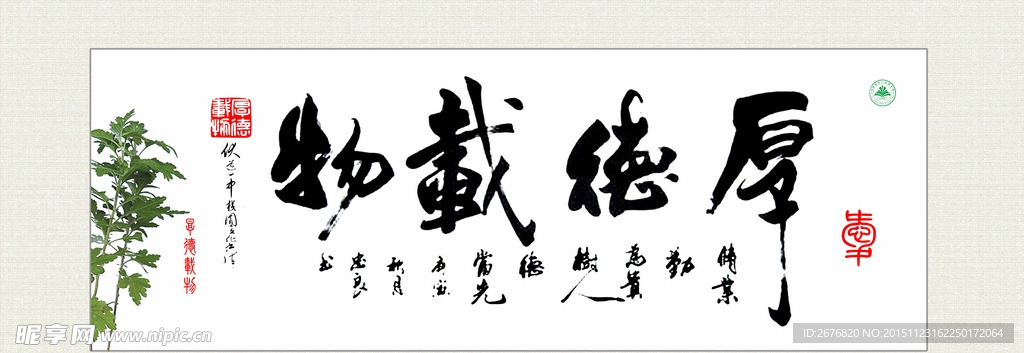 厚德載物
業
勤
為貴
樹人
德
當先
秋月
忠良
书
厚德載物
一中校園文化
厚德載物
昵享网 www.nipic.cn
ID:2676820 NO:20151123162250172064